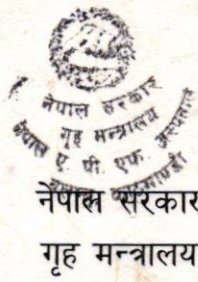 नेपाल सरकार
गृह मन्त्रालय
नेपाल ए. पी. एफ. अस्पताल
नेपाल सरकार
गृह मन्त्रालय